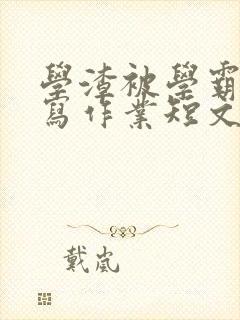 學渣被學霸
寫作業短文
戴嵐